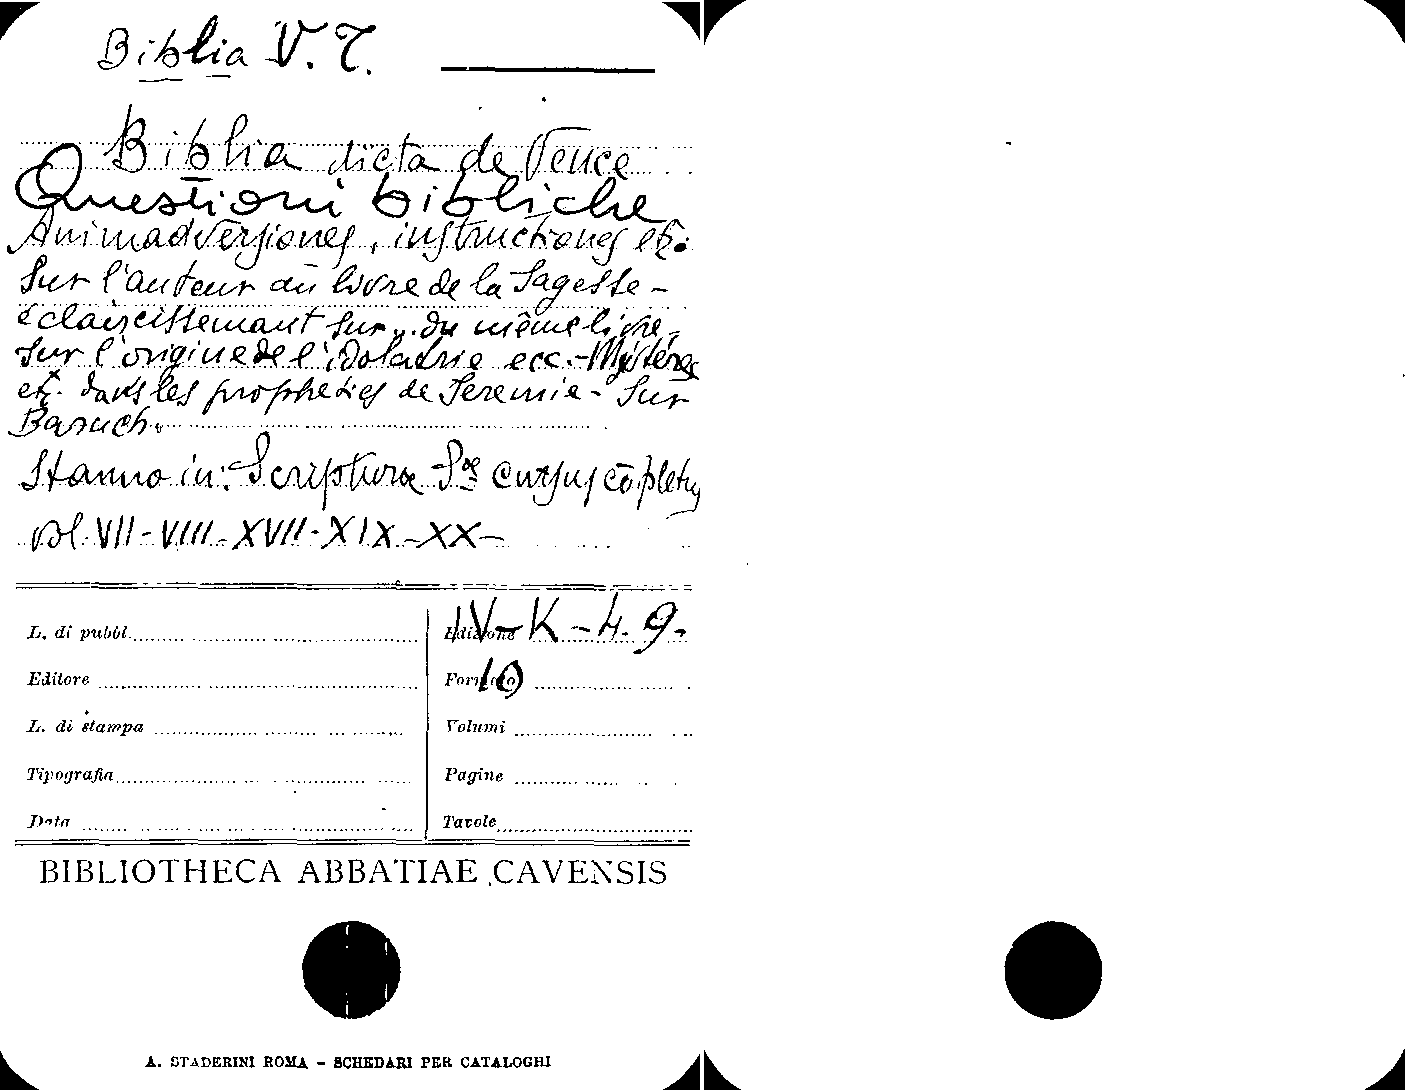 Biblia V. T.
Biblia dicta de Vence
Questioni bibliche
Animadversiones, instructiones etc.
Sur l'auteur du livre de la Sagesse -
éclaircissemant sur .. du même livre -
sur l'origine de l'idolatrie ecc. - Mystères
etc. dans les propheties de Jeremie - Sur
Baruch.
Stanno in: Scriptura Sæ cursus cōpletus
vol. VII - VIII - XVII - XIX - XX -
L. di pubbl. Edizione IV - K - 4. 9.
Editore Formato 10
L. di stampa Volumi
Tipografia Pagine
Data Tavole
BIBLIOTHECA ABBATIAE CAVENSIS
A. STADERINI ROMA - SCHEDARI PER CATALOGHI